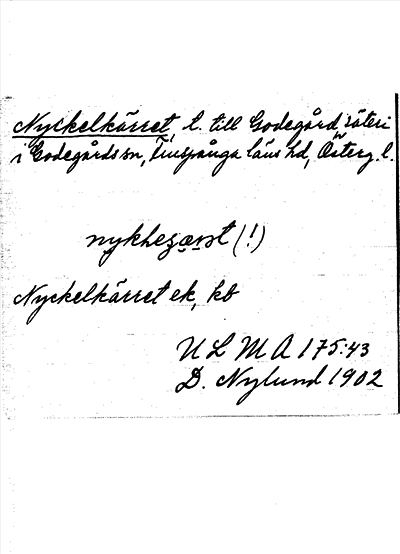 Nyckelkärret, t. till Godegård säteri
i Godegårds sn, Finspånga läns hd, Österg. l.
(!)
Nyckelkärret ek, kb
U L M A 175:43
D. Nylund 1902